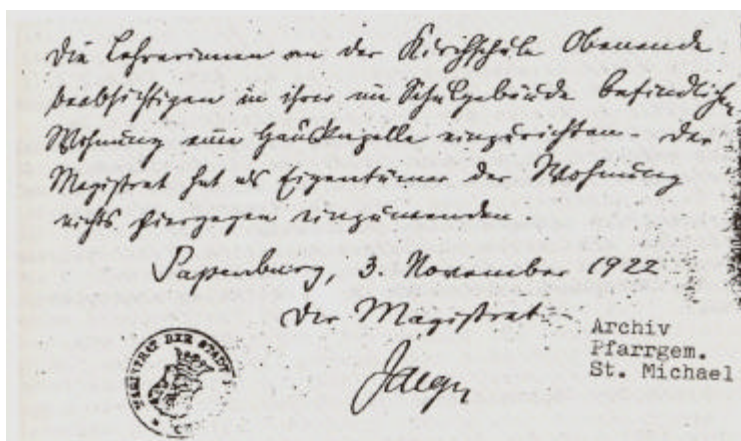 Die Lehrerinnen an der Kirchschule Obenende
beabsichtigen in ihrer im Schulgebäude befindlichen
Wohnung eine Hauskapelle einzurichten. Der
Magistrat hat als Eigentümer der Wohnung
nichts hiergegen einzuwenden.
Papenburg, 3. November 1922
Der Magistrat
Jaeger
MAGISTRAT DER STADT
Archiv
Pfarrgem.
St. Michael